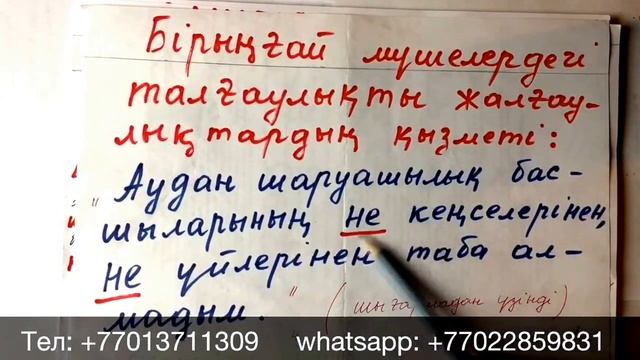 Бірыңғай мүшелердегі
талғаулықты жалғау-
лықтардың қызметі:
"Аудан шаруашылық бас-
шыларының не кеңселерінен,
не үйлерінен таба ал-
мадым."
(шығармадан үзінді)
Тел: +77013711309 whatsapp: +77022859831